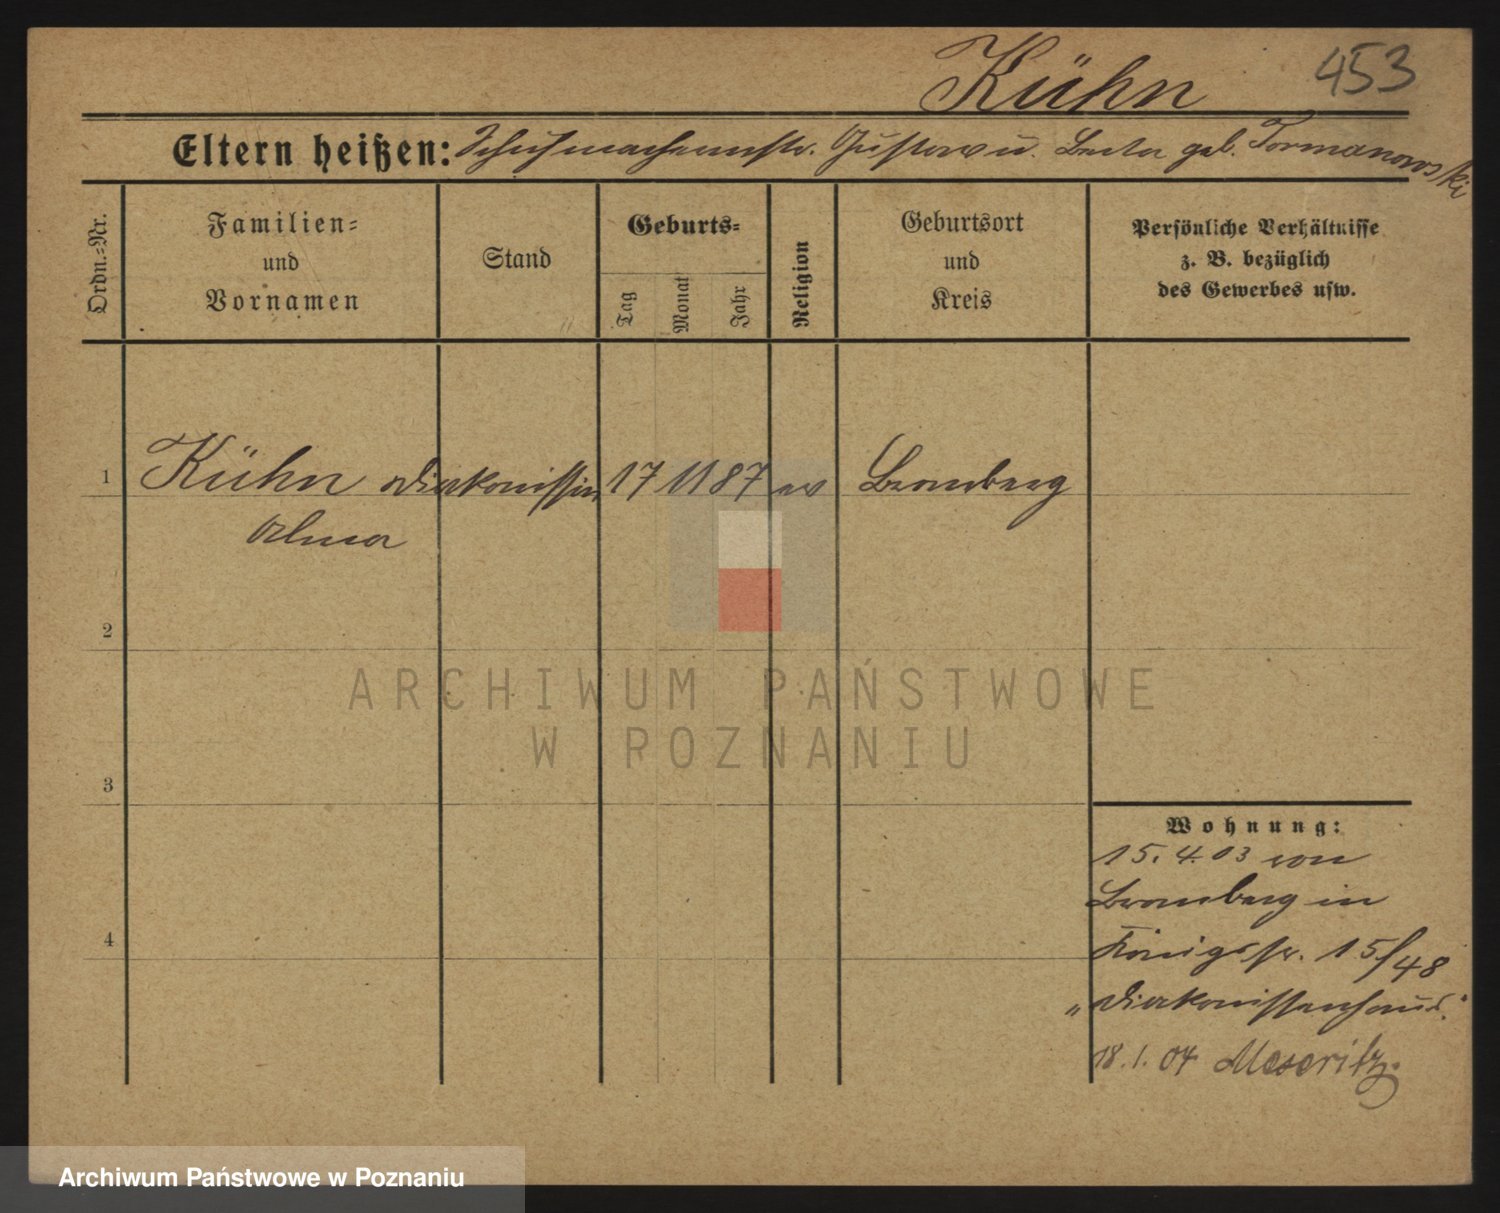 Kühn 453
Eltern heißen: Schuhmachermstr. Gustav u. Berta geb. Tormanowski
Ordn.-Nr.
Familien-
und
Vornamen
Stand
Geburts-
Tag
Monat
Jahr
Religion
Geburtsort
und
Kreis
Persönliche Verhältnisse
z. B. bezüglich
des Gewerbes usw.
1 Kühn Diakonissin 17 11 87 ev Bromberg
Alma
2
ARCHIWUM PAŃSTWOWE
W POZNANIU
3
Wohnung:
15.4.03 von
Bromberg in
4
Königsstr. 15/48
"Diakonissenhaus."
18.1.04 Meseritz.
Archiwum Państwowe w Poznaniu